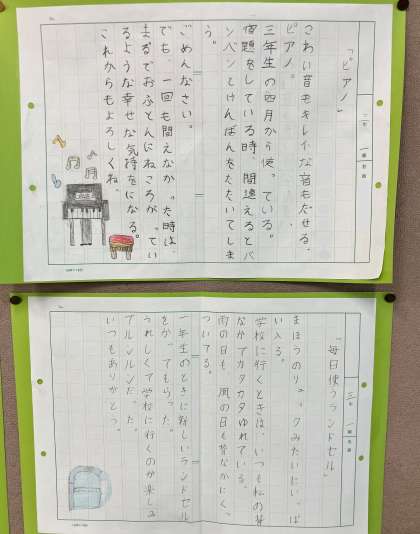 「ピアノ」
三年 一組 名前
こわい音もキレイな音もだせる、
ピアノ。
三年生の四月から使っている。
宿題をしている時、間違えるとバ
ンバンとけんばんをたたいてしま
う。
ごめんなさい。
でも、一回も間えなかった時は、
まるでおふとんにねころがってい
るような幸せな気持ちになる。
これからもよろしくね。
「毎日使うランドセル」
三年 一組 名前
まほうのリュックみたいにいっぱ
い入る。
学校に行くときは、いつも私の背
なかでカタカタゆれている。
雨の日も、風の日も背なかにくっ
ついてる。
一年生のときに新しいランドセル
をかってもらった。
うれしくて学校に行くのが楽しみ
でルンルンだった。
いつもありがとう。